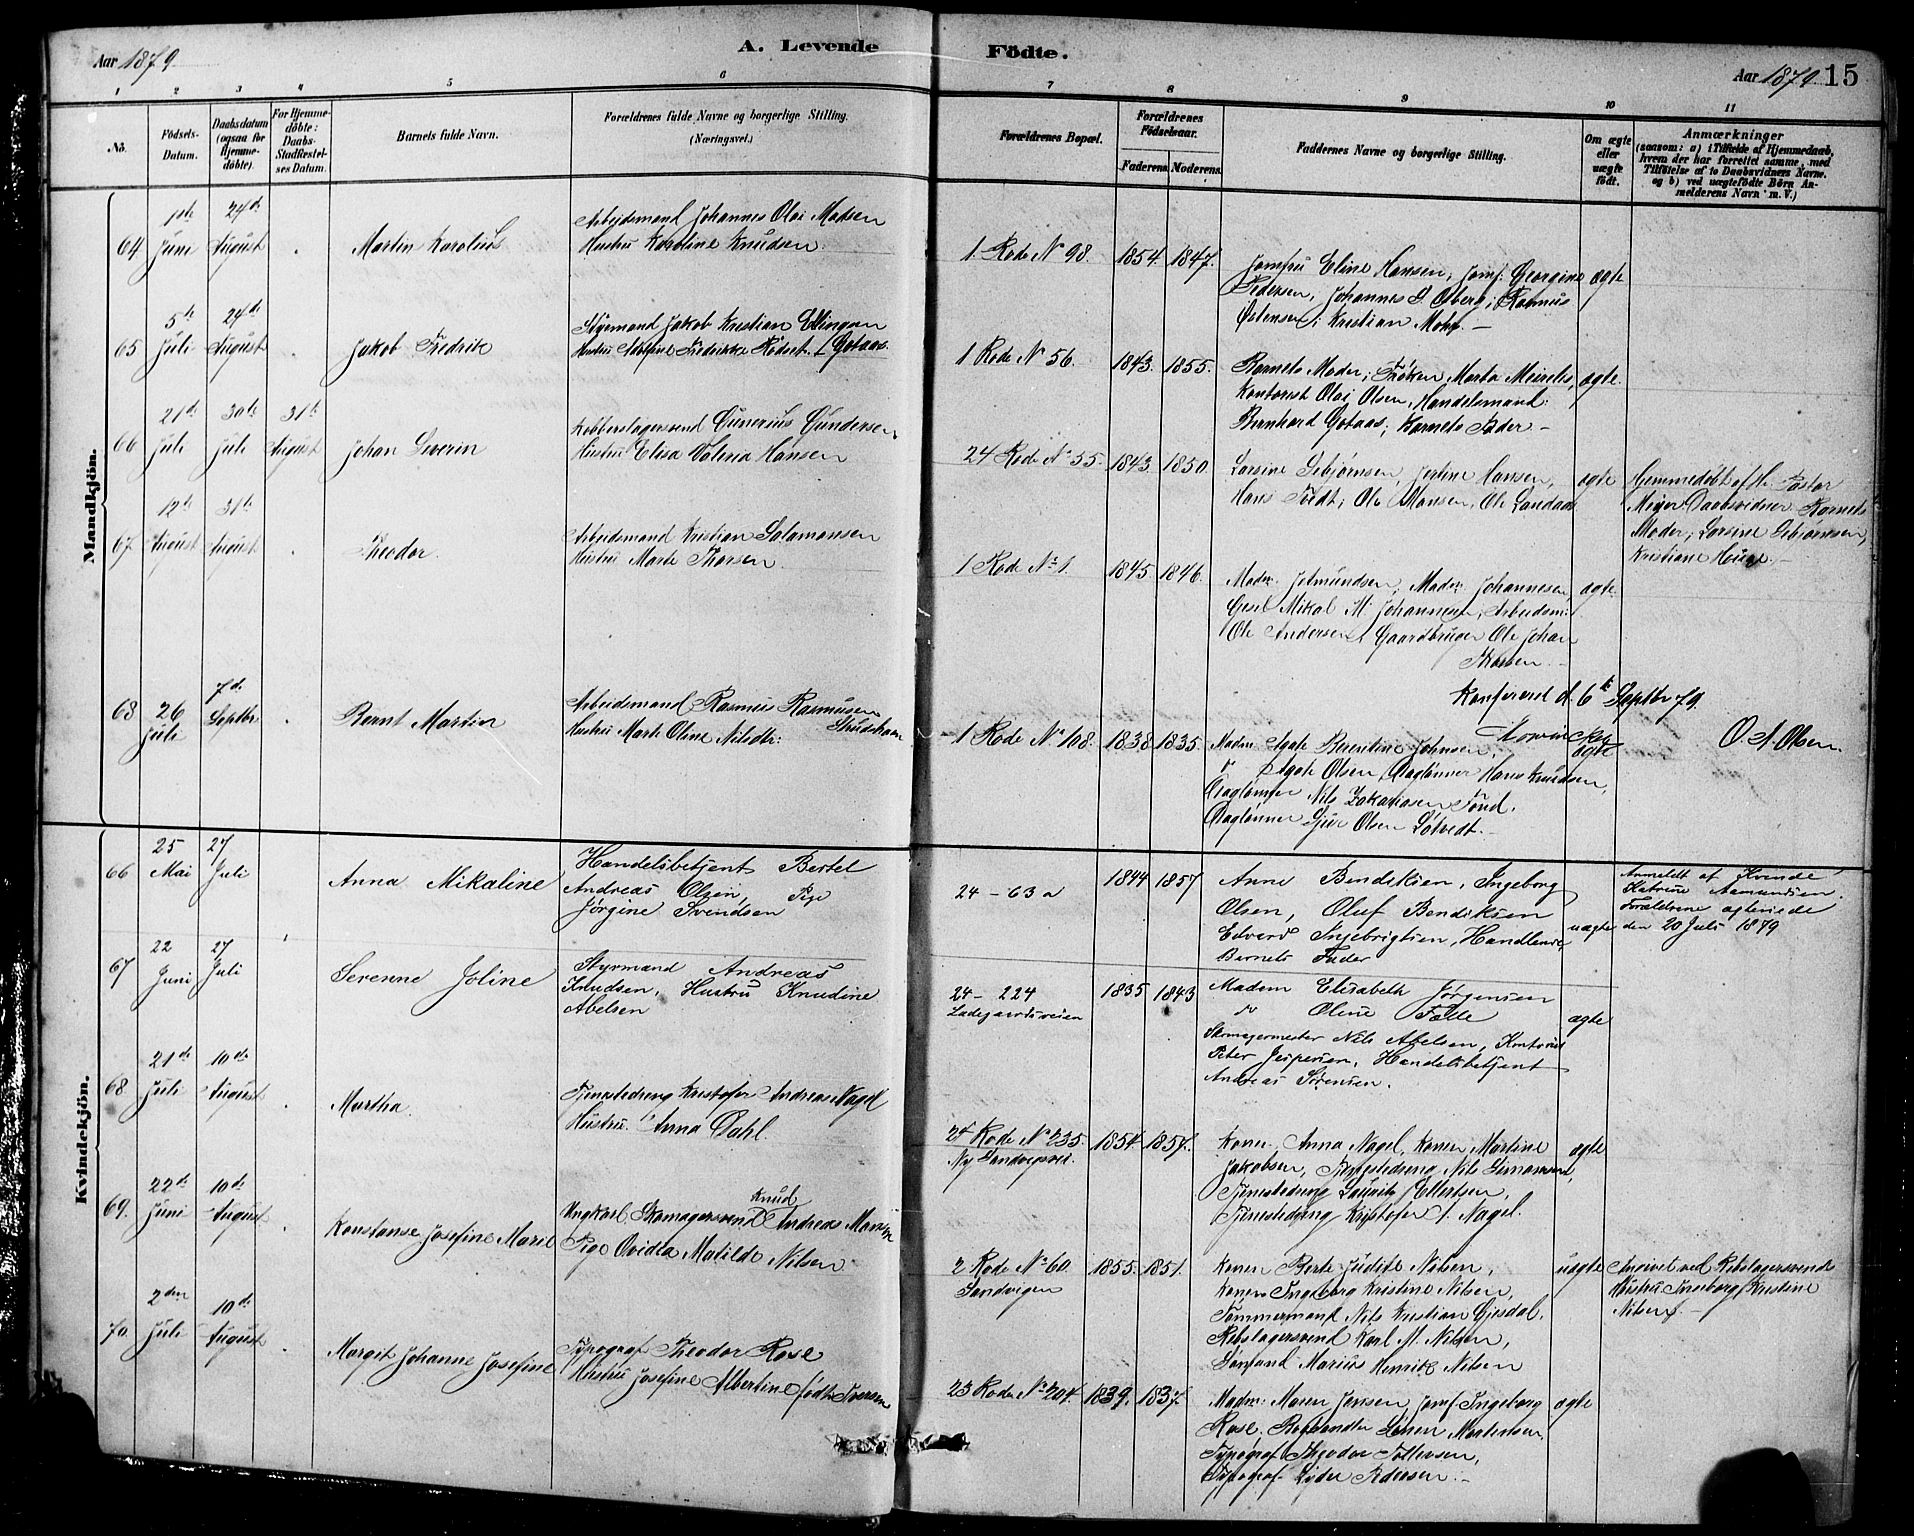 Aar 1879
A. Levende Födte.
Aar 1879. 15
1 2 3 4 5 6 7 8 9 10 11
No.
Födsels-Datum.
Daabsdatum (ogsaa for Hjemme-döbte).
For Hjemme-döbte: Daabs-Stadfestel-ses Datum.
Barnets fulde Navn.
Forældrenes fulde Navne og borgerlige Stilling.
(Næringsvei.)
Forældrenes Bopæl.
Forældrenes Födselsaar.
Faderens. Moderens.
Faddernes Navne og borgerlige Stilling.
Om ægte eller uægte født.
Anmærkninger
(saasom: a) i Tilfælde af Hjemmedaab,
hvem der har forrettet samme, med
Tilføielse af to Daabsvidners Navne.
og b) ved uægtefødte Börn An-
melderens Navn m. V.)
Mandkjön.
64 1ste Juni 24de August Martin Karolius
Arbeidsmand Johannes Olai Madsen
Hustru Karoline Knudsen.
1 Rode No 98. 1854. 1847.
Jomfru Eline Hansen, Jomf. Georgine
Pedersen, Johannes J. Osberg, Rasmus
Østensen, Kristian Mohr.
ægte
65 5te Juli 24de August Jakob Fredrik
Styrmand Jakob Kristian Ellingsen
Hustru Adolfine Fredrikke Rødset f. Gotaas.
1 Rode No 56. 1843. 1855.
Barnets Moder, Frøken Marta Meireles,
Kontorist Olai Olsen, Handelsmand
Bernhard Gotaas, Barnets Fader
ægte.
66 21de Juli 30te Juli 31te August Johan Severin
Kobberslagersvend Gunerius Gundersen,
Hustru Elisa Valeria Hansen
24 Rode No 55. 1843. 1850.
Larsine Esbjørnsen, Jertine Hansen,
Hans Tvedt, Ole Monsen, Ole Landaas
ægte
Hjemmedøbt af Hr. Pastor
Meyer. Daabsvidner Barnets
Moder, Larsine Esbjørnsen,
Kristiane Hauge.
67 12te August 31te August Theodor.
Arbeidsmand Kristian Salamonsen
Hustru Marte Thorsen.
1 Rode No 1. 1845. 1846.
Madm. Jetmundsen, Madm. Johannesen,
Gesel Mikal M. Johannesen, Arbeidsm.
Ole Andersen, Gaardbruger Ole Johan
Thorsen.
ægte
Konfereret d. 6te Septbr 79.
68 26 Juli 7de Septbr. Bernt Martin
Arbeidsmand Rasmus Rasmusen Strudshavn
Hustru Marte Oline Nilsdtr.
1 Rode No 108. 1838 1835.
Madm. Agate Berentine Johnsen,
" Agate Olsen, Dagløner Hans Knudsen,
Dagløner Nils Zakariasen Tønd.
Dagløner Sjur Olsen Løtvedt.
ægte O. A. Olsen.
Kvindekjön.
66 25 Mai 27 Juli Anna Mikaline
Handelsbetjent Bertel
Andreas Olsen, Pige
Jørgine Svendsen
24 - 63 a 1844 1857
Anne Bendiksen, Ingeborg
Olsen, Oluf Bendiksen
Edvard Ingebrigtsen, Handlende,
Barnets Fader
uægte
Anmeldt af Kvinde
Katrine Aamundsen
Forældrene ægteviede
den 20 Juli 1879
67 22 Juni 27 Juli Serenne Joline
Styrmand Andreas
Knudsen, Hustru Knudine
Abelsen
24 - 224 Ladegaardsveien 1835 1843
Madam Elisabeth Jørgensen
" Oline Fælle
Skomagermester Nils Abelsen, Kontorist
Peter Jespersen, Handelsbetjent
Andreas Sørensen.
ægte
68 21de Juli 10de August Martha.
Tjenestedreng Kristofer Andreas Nagel
Hustru Anna Dahl.
24 Rode No 235. Ny Sandvigsvei. 1854. 1857.
Konen Anna Nagel, Konen Martine
Jakobsen, Tjenestedreng Nils
Tjenestedreng Lauritz Ellertsen,
Tjenestedreng Kristofer A. Nagel.
ægte
69. 22de Juni 10de August Konstanse Josefine Marie
Ungkarl Skomagersvend Knud Andreas Monsen
Pige Ovidia Matilde Nilsen
2 Rode No 60. Sandvigen 1855. 1851.
Konen Berte Judite Nilsen,
Konen Ingeborg Kristine Nilsen,
Tømmermand Nils Kristian Gjesdal,
Rebslagersvend Karl M. Nilsen,
Sømand Marius Henrik Nilsen
uægte
Angivet ved Rebslagersvends
Hustru Ingeborg Kristine
Nilsen.
70. 2den Juli 10de August Margit Johanne Josefine
Typograf Theodor Rose
Hustru Josefine Albertine født Iversen
23 Rode No 204. 1839. 1837.
Madm. Maren Jensen, Jomf. Ingeborg
Rose, Søren Mortensen,
Typograf Theodor Tollefsen,
Typograf Lyder Pedersen.
ægte